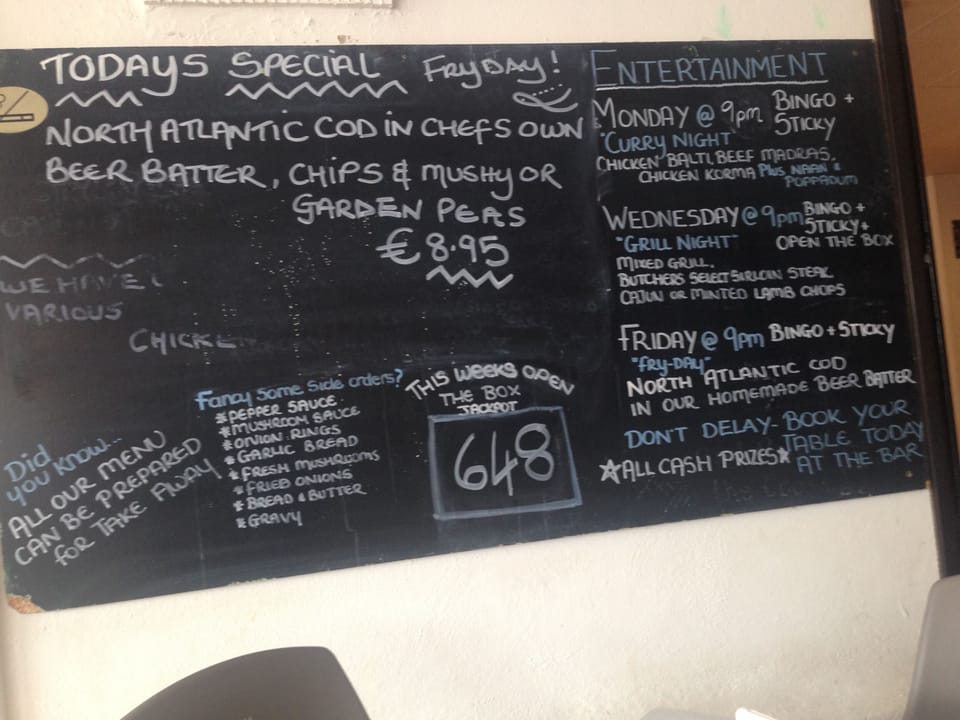 TODAYS SPECIAL FRYDAY!
NORTH ATLANTIC COD IN CHEFS OWN
BEER BATTER, CHIPS & MUSHY OR
GARDEN PEAS
€8.95
WE HAVE
VARIOUS
Did
you know..
ALL OUR MENU
CAN BE PREPARED
for TAKE AWAY
Fancy Some Side orders?
*PEPPER SAUCE
*MUSHROOM SAUCE
*ONION RINGS
*GARLIC BREAD
*FRESH MUSHROOMS
*FRIED ONIONS
*BREAD & BUTTER
*GRAVY
THIS WEEKS OPEN
THE BOX
JACKPOT
648
ENTERTAINMENT
MONDAY @ 9pm BINGO +
STICKY
"CURRY NIGHT"
CHICKEN BALTI, BEEF MADRAS,
CHICKEN KORMA Plus NAAN &
POPPADUM
WEDNESDAY @ 9pm BINGO +
STICKY+
"GRILL NIGHT" OPEN THE BOX
MIXED GRILL,
BUTCHERS SELECT SIRLOIN STEAK
CAJUN OR MINTED LAMB CHOPS
FRIDAY @ 9pm BINGO + STICKY
"FRY-DAY"
NORTH ATLANTIC COD
IN OUR HOMEMADE BEER BATTER
DON'T DELAY - BOOK YOUR
TABLE TODAY
AT THE BAR
★ALL CASH PRIZES★